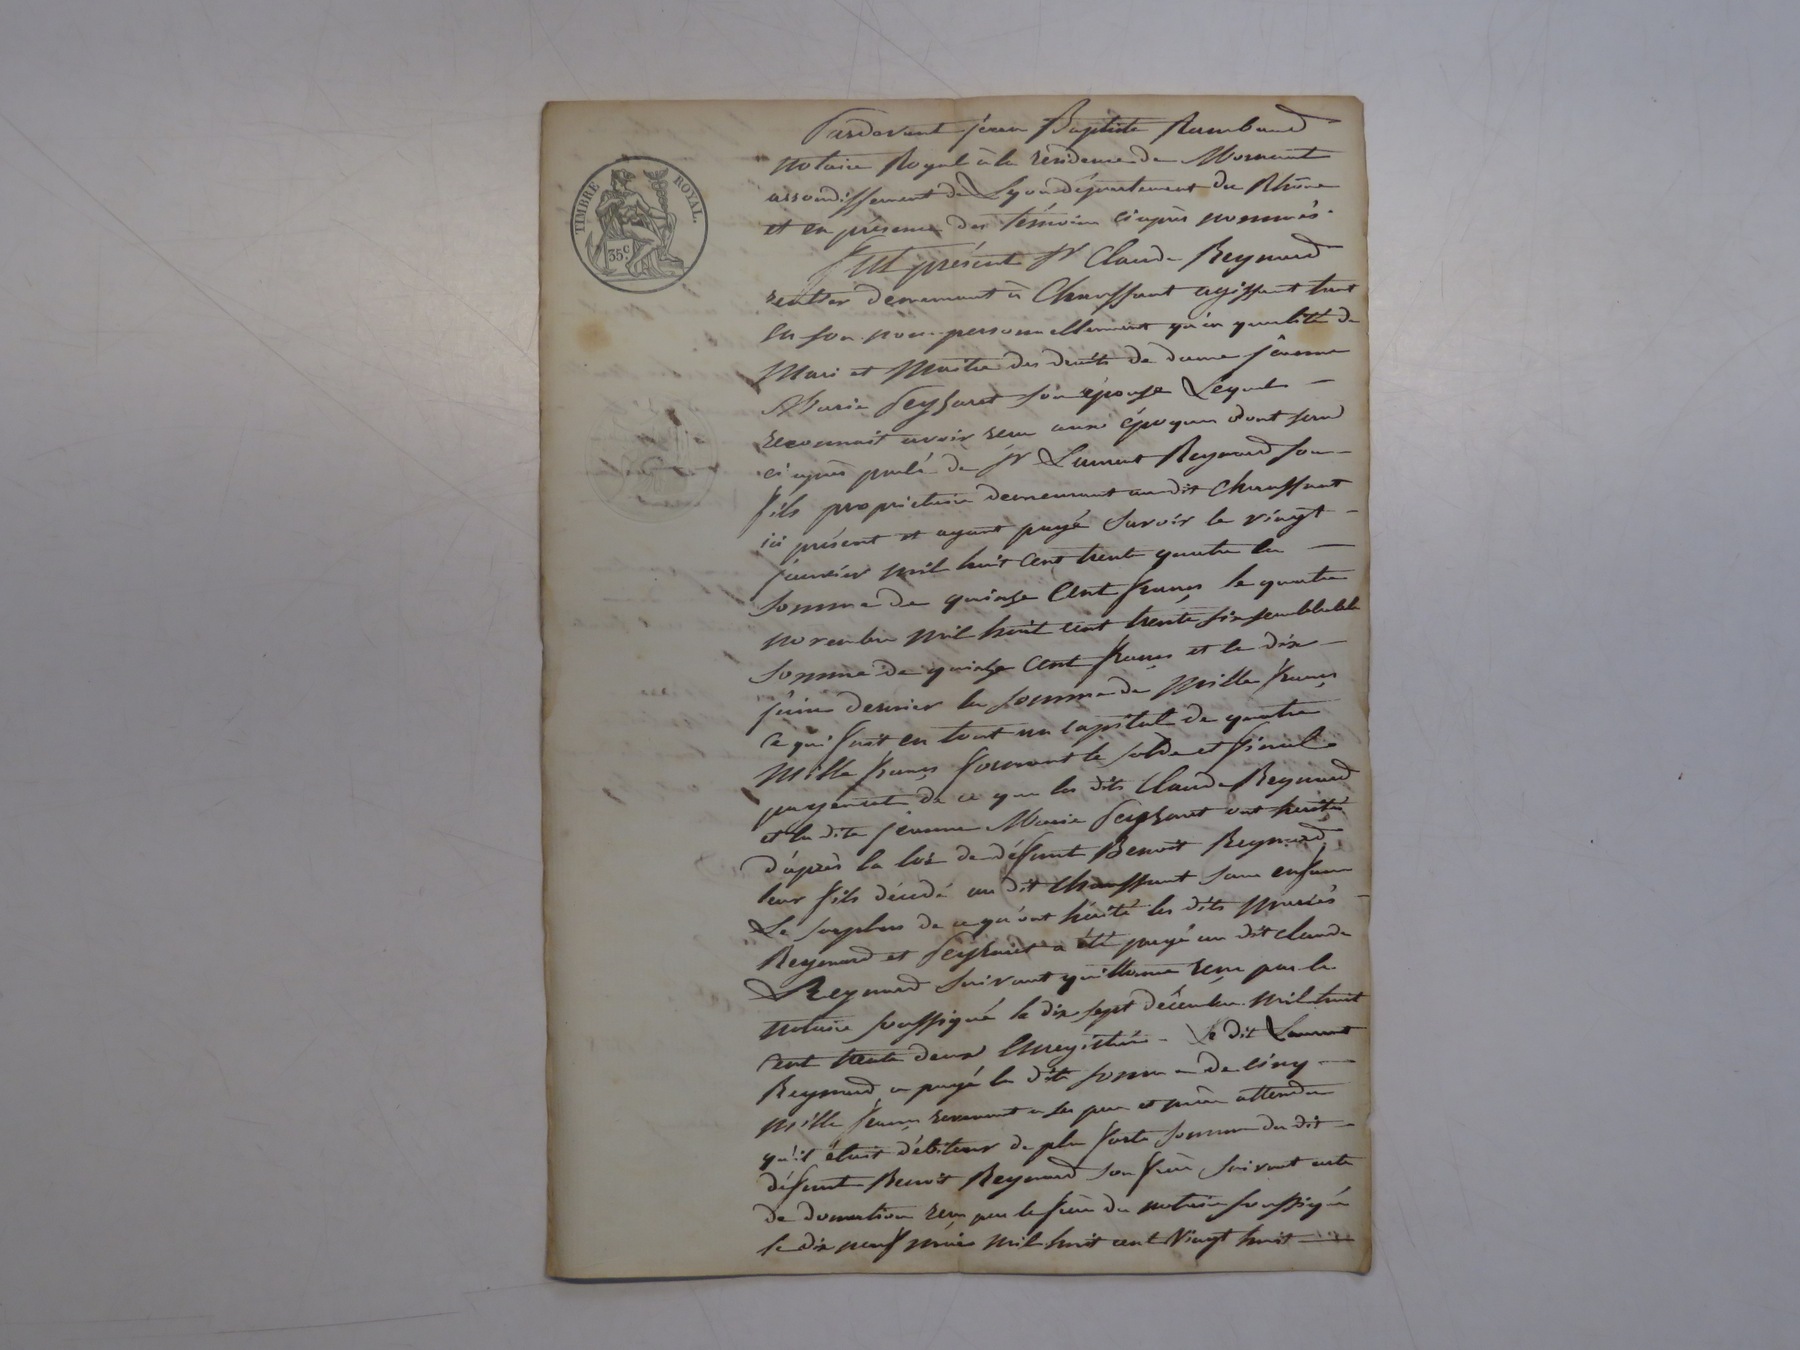 TIMBRE ROYAL.
35 c.
Pardevant Jean Baptiste Rambaud
notaire Royal à la résidence de Mornant
arrondissement de Lyon département du Rhône
et en présence des témoins ci après nommés.
Fut présent Sr Claude Reynard
rentier demeurant à Chaussant agissant tant
en son nom personnellement qu'en qualité de
Mari et Maitre des droits de dame Jeanne
Marie Peyzaret son épouse Lequel
reconnait avoir reçu aux époques dont sera
ci après parlé de Sr Laurent Reynard son
fils propriétaire demeurant au dit Chaussant
ici présent et ayant payé Savoir le vingt
janvier mil huit cent trente quatre la
somme de quinze Cent francs le quatre
novembre mil huit cent trente six semblable
somme de quinze Cent francs et le dix
juin dernier la somme de Mille francs
ce qui fait en tout un capital de quatre
Mille francs formant le solde et final
payement de ce que les dits Claude Reynard
et la dite Jeanne Marie Peyzaret ont hérités
d'après la loi de défunt Benoit Reynard
leur fils décédé au dit Chaussant sans enfans
Le surplus de ce qu'ont hérité les dits Mariés
Reynard et Peyzaret a été payé au dit Claude
Reynard suivant quittance reçu par le
notaire soussigné le dix sept décembre mil huit
cent trente deux Enregistrée. Le dit Laurent
Reynard a payé la dite somme de Cinq
mille francs revenant à ses père et mère attendu
qu'il était débiteur de plus forte somme du dit
défunt Benoit Reynard son frère suivant acte
de donation reçu par le père du notaire soussigné
le dix neuf mil huit cent Vingt huit